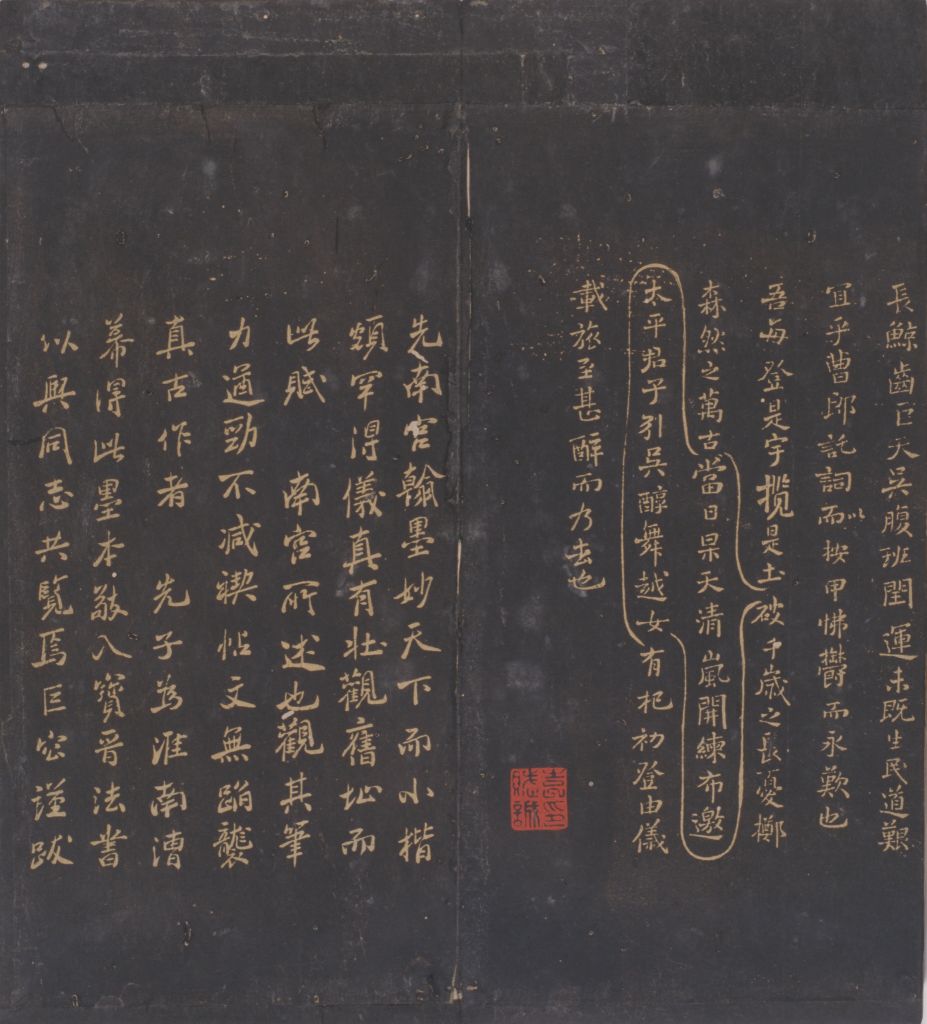 長鯨齒巨天吳腹班閏運未既生民道艱
宜乎曹郎託詞以而按甲怫欝而永歎也
吾每登是宇攬是土破千歲之長憂擲
森然之萬古當日杲天清嵐開練布邀
太平君子引吳醇舞越女有杞初登由儀
載旅至甚醉而乃去也
先南宮翰墨妙天下而小楷
頗罕得儀真有壯觀舊址而
此賦 南宮所述也觀其筆
力遒勁不減禊帖文無蹈襲
真古作者 先子為淮南漕
幕得此墨本敬入寶晉法書
以與同志共覽焉巨容謹跋